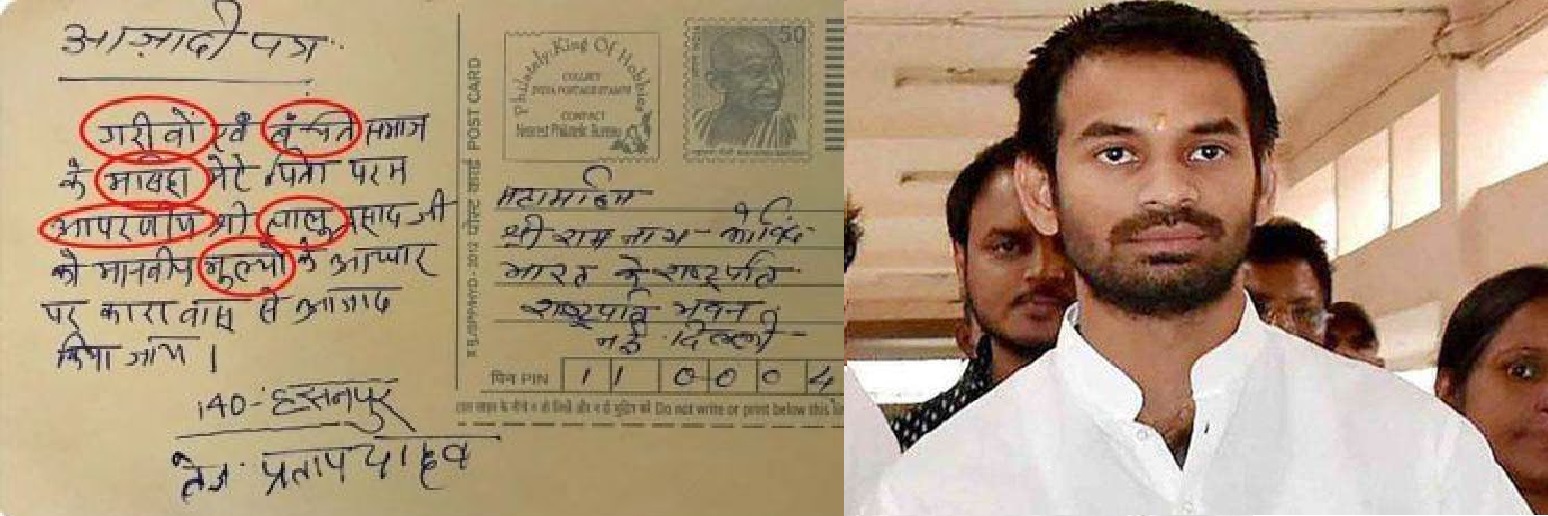 आज़ादी पत्र
गरीवों एवं वंचित समाज
के मासिहा मेरे पिता परम
आपरणीय श्री लालु प्रसाद जी
को मानवीय मुल्यों के आधार
पर कारावास से आजाद
किया जाय ।
140-हसनपुर
तेज प्रताप यादव
POST CARD
पोस्ट कार्ड
Philately: King Of Hobbies
COLLECT
INDIA POSTAGE STAMPS
CONTACT
Nearest Philatelic Bureau
50
महामहिम
श्री राम नाथ कोविंद
भारत के राष्ट्रपति
राष्ट्रपति भवन
नई दिल्ली
पिन PIN 110004
Do not write or print below this